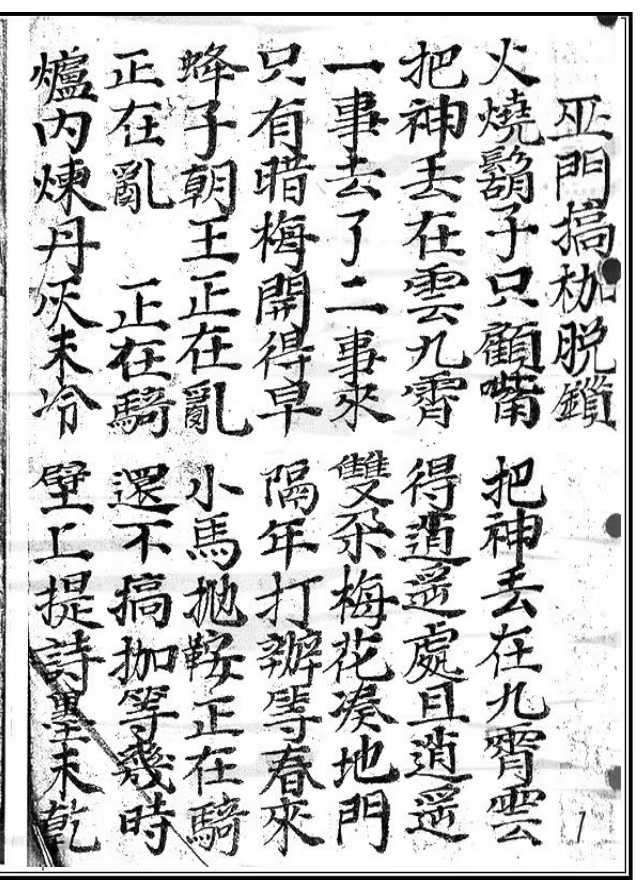 巫門搞枷脱鎖
火燒鬍子只顧嘴 把神丢在九霄雲
把神丢在雲九霄 得逍遥處且逍遥
一事去了二事來 雙朶梅花凑地門
只有暗梅開得早 隔年打辦等春來
蜂子朝王正在亂 小馬抛鞍正在騎
正在亂 正在騎 還不搞拁等幾時
爐内煉丹灰末冷 壁上提詩墨末乾
1